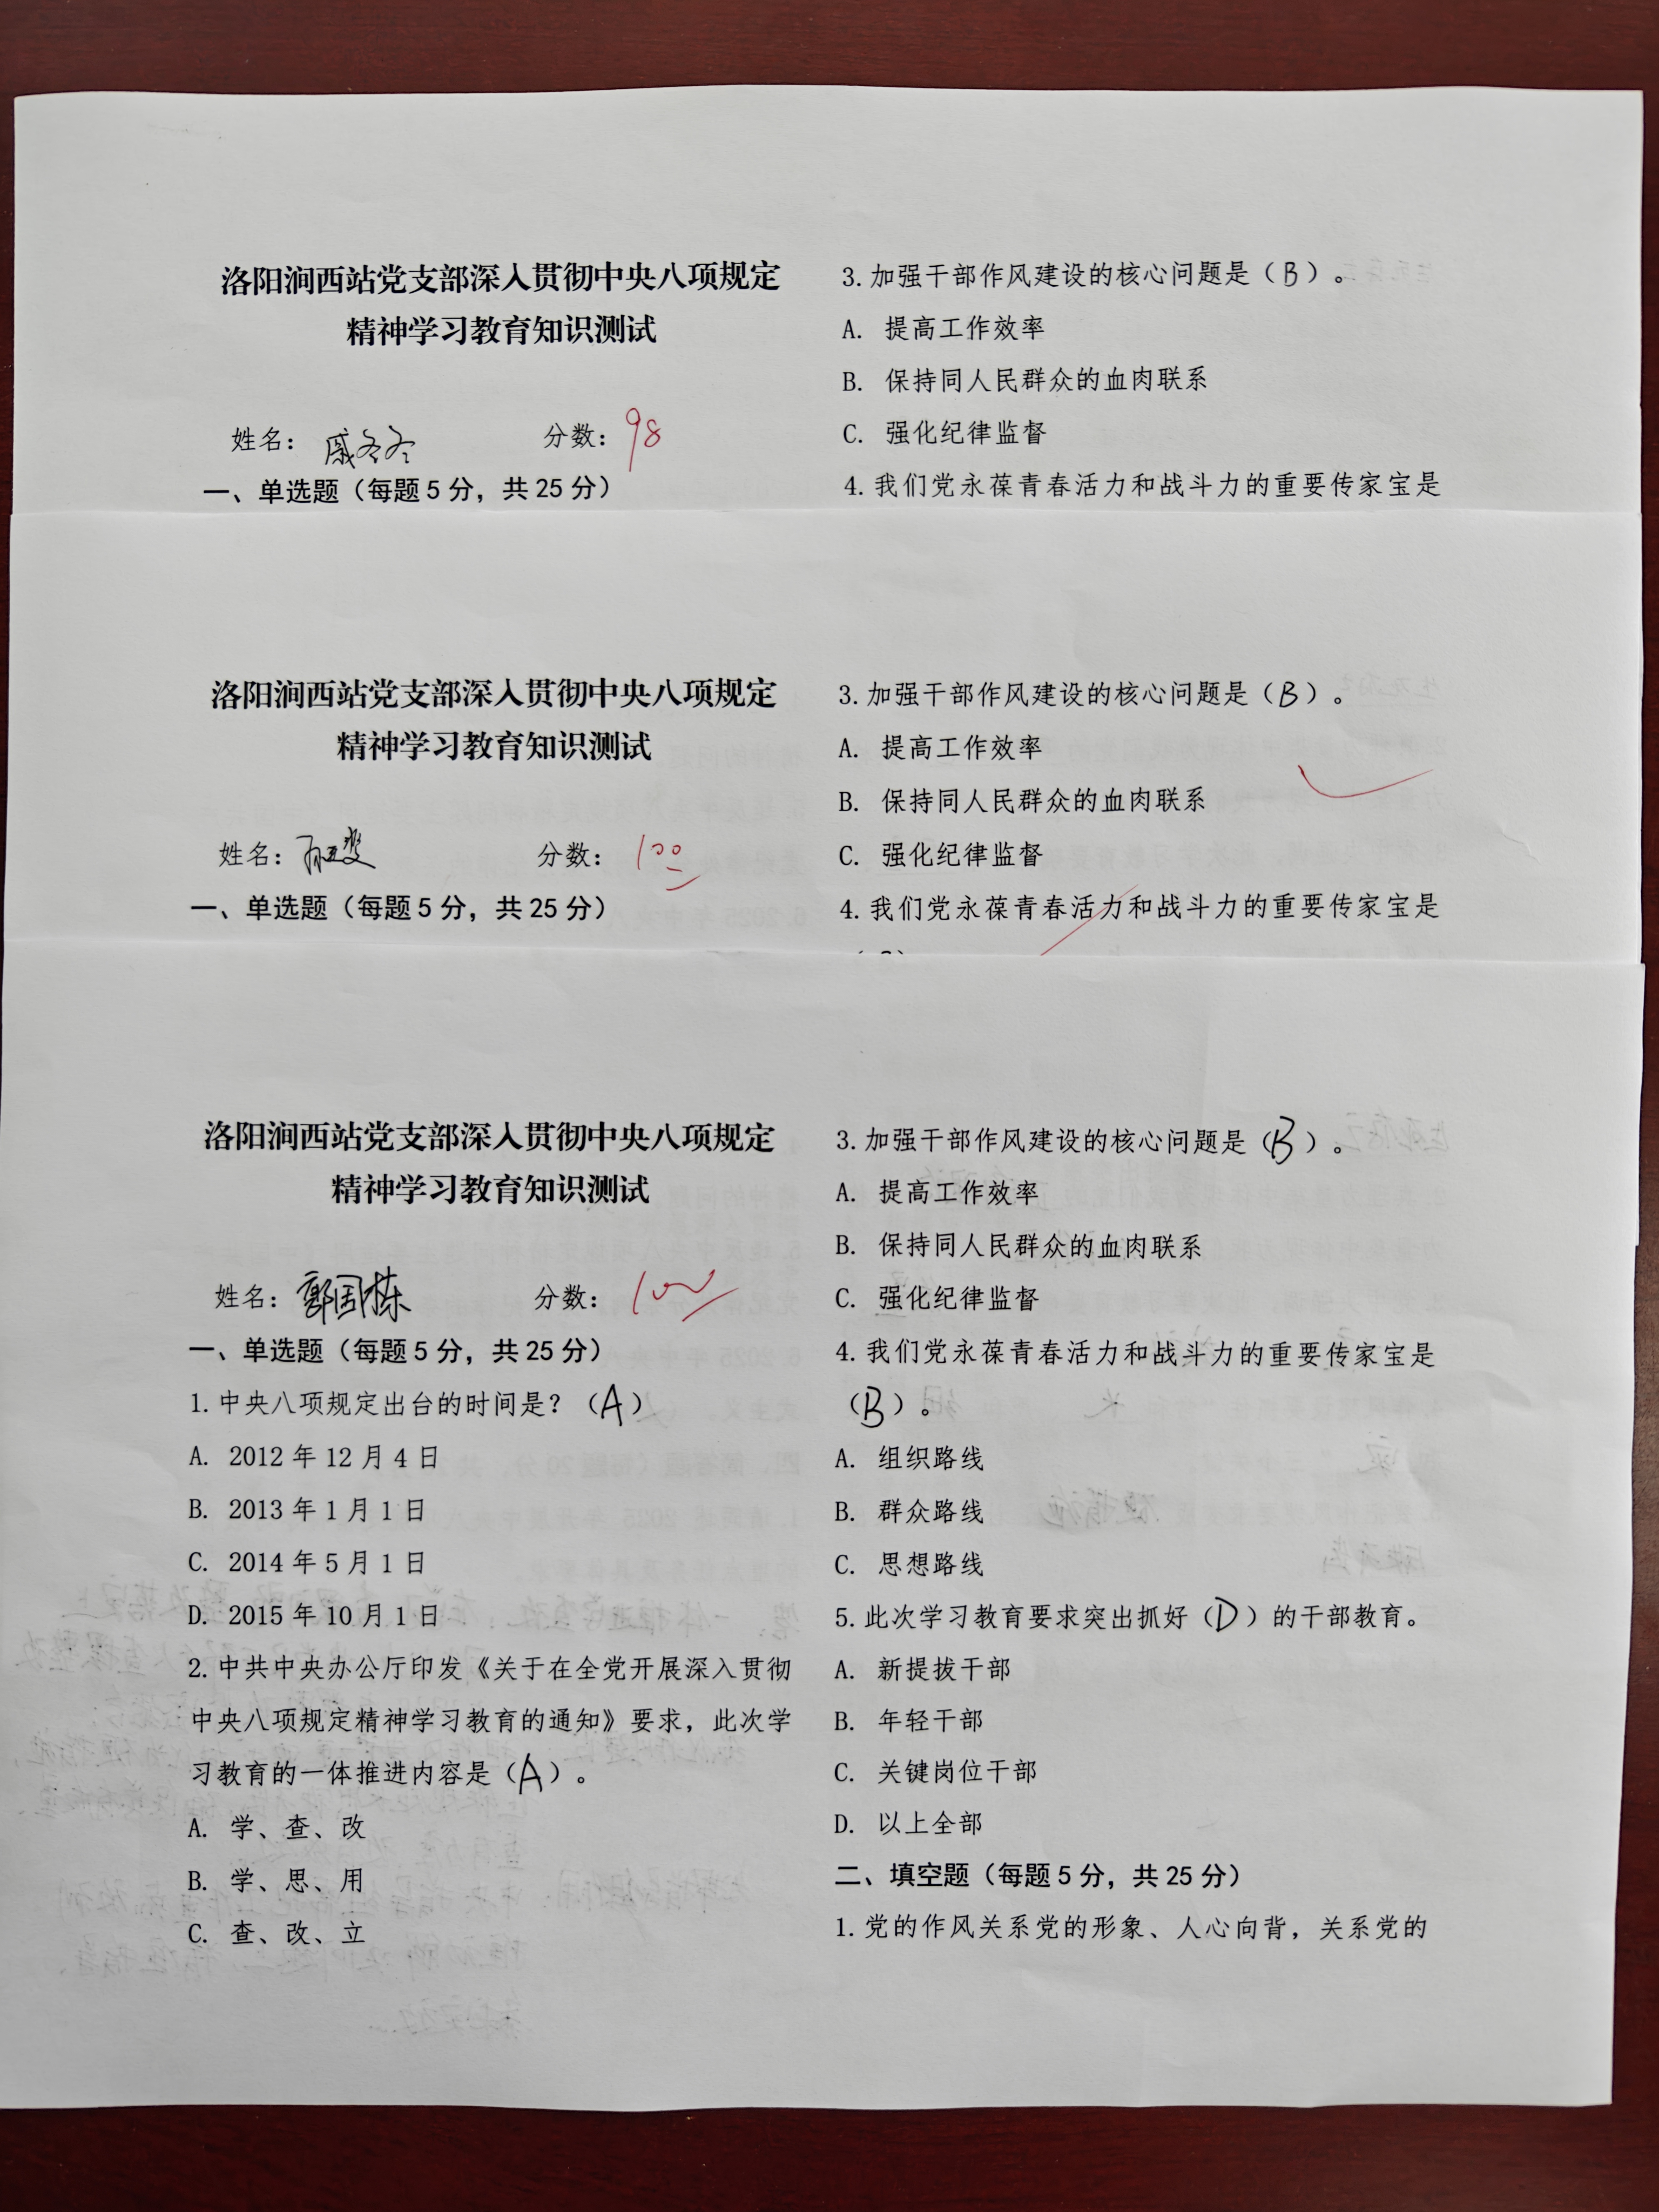 洛阳涧西站党支部深入贯彻中央八项规定
精神学习教育知识测试
姓名：戚冬冬 分数：98
一、单选题（每题5分，共25分）
3.加强干部作风建设的核心问题是（B）。
A. 提高工作效率
B. 保持同人民群众的血肉联系
C. 强化纪律监督
4.我们党永葆青春活力和战斗力的重要传家宝是
洛阳涧西站党支部深入贯彻中央八项规定
精神学习教育知识测试
姓名： 分数：100
一、单选题（每题5分，共25分）
3.加强干部作风建设的核心问题是（B）。
A. 提高工作效率
B. 保持同人民群众的血肉联系
C. 强化纪律监督
4.我们党永葆青春活力和战斗力的重要传家宝是
洛阳涧西站党支部深入贯彻中央八项规定
精神学习教育知识测试
姓名：郭国栋 分数：100
一、单选题（每题5分，共25分）
1.中央八项规定出台的时间是？（A）
A. 2012年12月4日
B. 2013年1月1日
C. 2014年5月1日
D. 2015年10月1日
2.中共中央办公厅印发《关于在全党开展深入贯彻
中央八项规定精神学习教育的通知》要求，此次学
习教育的一体推进内容是（A）。
A. 学、查、改
B. 学、思、用
C. 查、改、立
3.加强干部作风建设的核心问题是（B）。
A. 提高工作效率
B. 保持同人民群众的血肉联系
C. 强化纪律监督
4.我们党永葆青春活力和战斗力的重要传家宝是
（B）。
A. 组织路线
B. 群众路线
C. 思想路线
5.此次学习教育要求突出抓好（D）的干部教育。
A. 新提拔干部
B. 年轻干部
C. 关键岗位干部
D. 以上全部
二、填空题（每题5分，共25分）
1.党的作风关系党的形象、人心向背，关系党的